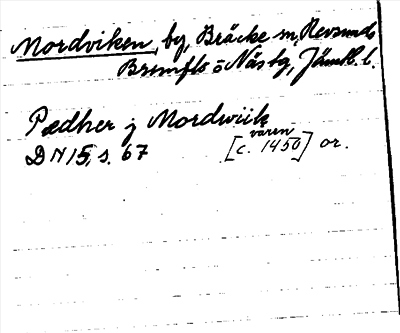 Mordviken, by, Bräcke sn, Revsunds
Brunflo o Näs tg, Jämtl. l.
Pædher j Mordwiik
våren
DN 15, s. 67 [c. 1450] or.